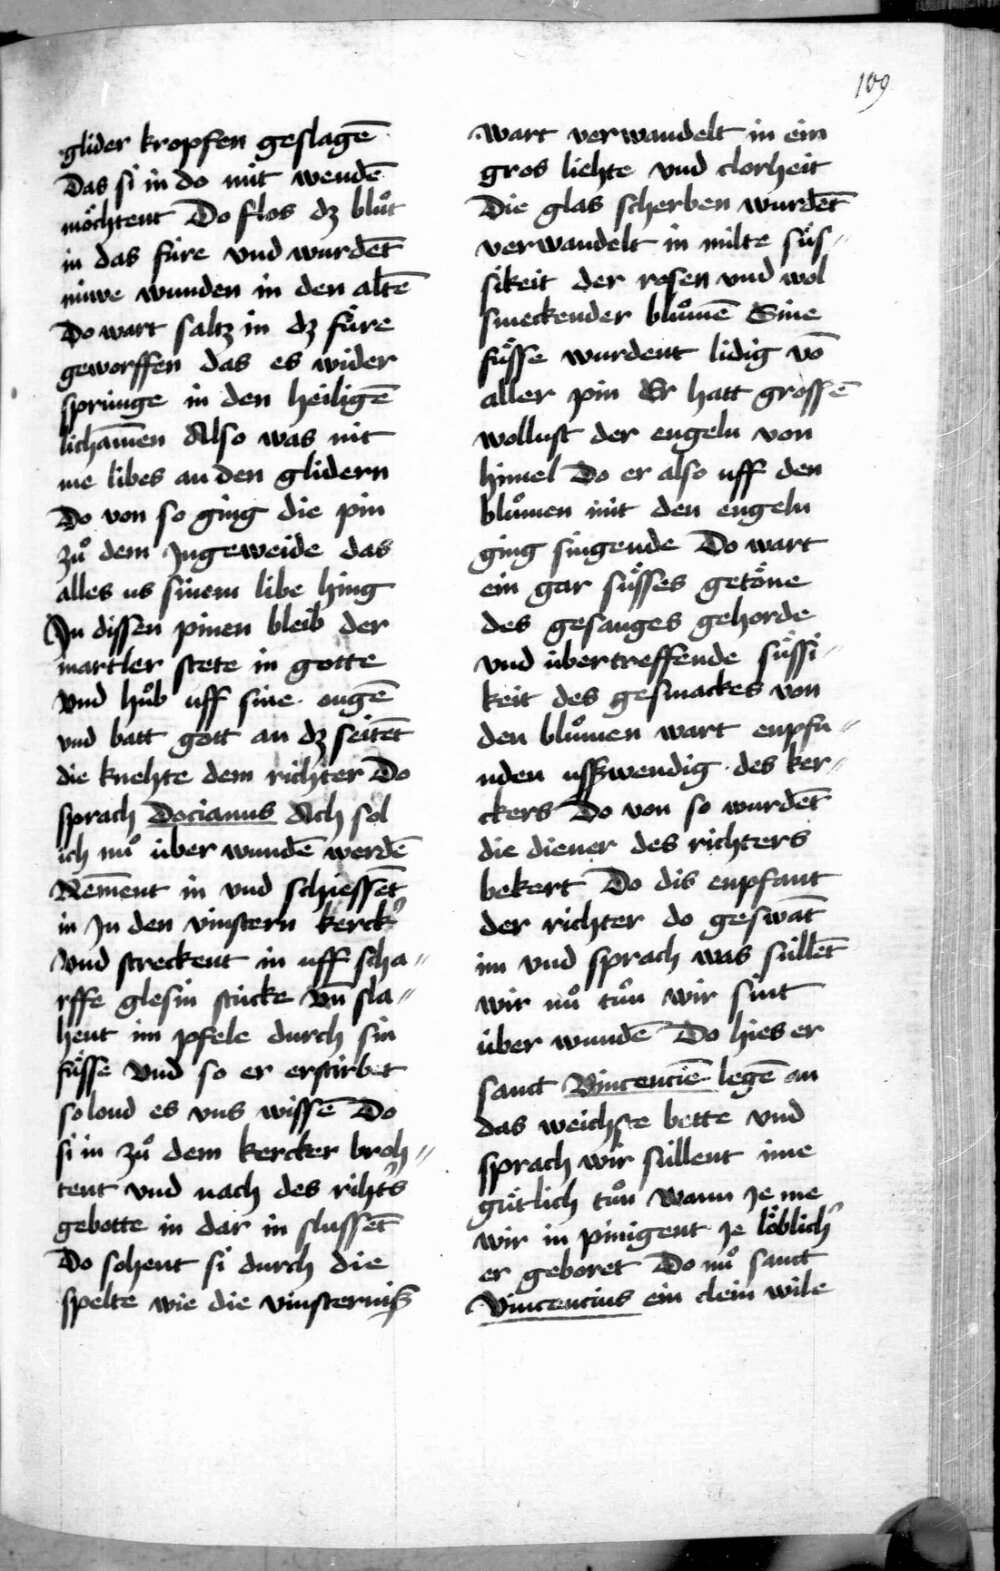 109
glider kropfen geslagē
Das si in do mit wendē
moͤchtent Do flos dz bluͦt
in das fúre vnd wurdēt
niuwe wunden in den altē
Do wart saltz in dz fúre
geworffen das es wider
springe in den heiligē
lichamen Also was nit
me libes an den glidern
Do von so ging die pin
zuͦ dem Ingeweide das
alles us sinem libe hing
In dissen pinen bleib der
martler stete in gotte
vnd huͦb uff sine ougē
vnd batt gott an dz seitēt
die knehte dem richter Do
sprach Docianus Ach sol
ich nuͦ úber wundē werdē
Nement in vnd schiessēt
in In den vinstern kerck'
vnd streckent in uff scha〃
rffe glesin stúcke vn̄ sla〃
hent im pfele durch sin
fuͤsse vnd so er erstirbet
so lond es vns wissē Do
si in zuͦ dem kercker broh〃
tent vnd nach des riht's
gebotte in dar in slussēt
Do sohent si durch die
spelte wie die vinsterniß
wart verwandelt in ein
gros liehte vnd clorheit
Die glas scherben wurdēt
verwandelt in milte suͤs〃
sikeit der rosen vnd wol
smeckender bluͦmē Sine
fuͤsse wurdent lidig vō
aller pin Er hatt grossē
wollust der engeln von
himel Do er also uff den
bluͦmen mit den engeln
ging singende Do wart
ein gar suͤsses getoͤne
des gesanges gehorde
vnd úbertreffende suͤssi〃
keit des gesmackes von
den bluͦmen wart enpfu〃
nden usswendig des ker〃
ckers Do von so wurdēt
die diener des richters
bekert Do dis enpfant
der richter do geswāt
im vnd sprach was súllēt
wir nuͦ tuͦn wir sint
úber wundē Do hies er
sanct Vincenciē legē an
das weichste bette vnd
sprach wir súllent ime
guͤtlich tuͦn wann Je me
wir in pinigent Je loͤblich'
er geboret Do nuͦ sanct
Vincencius ein clein wile